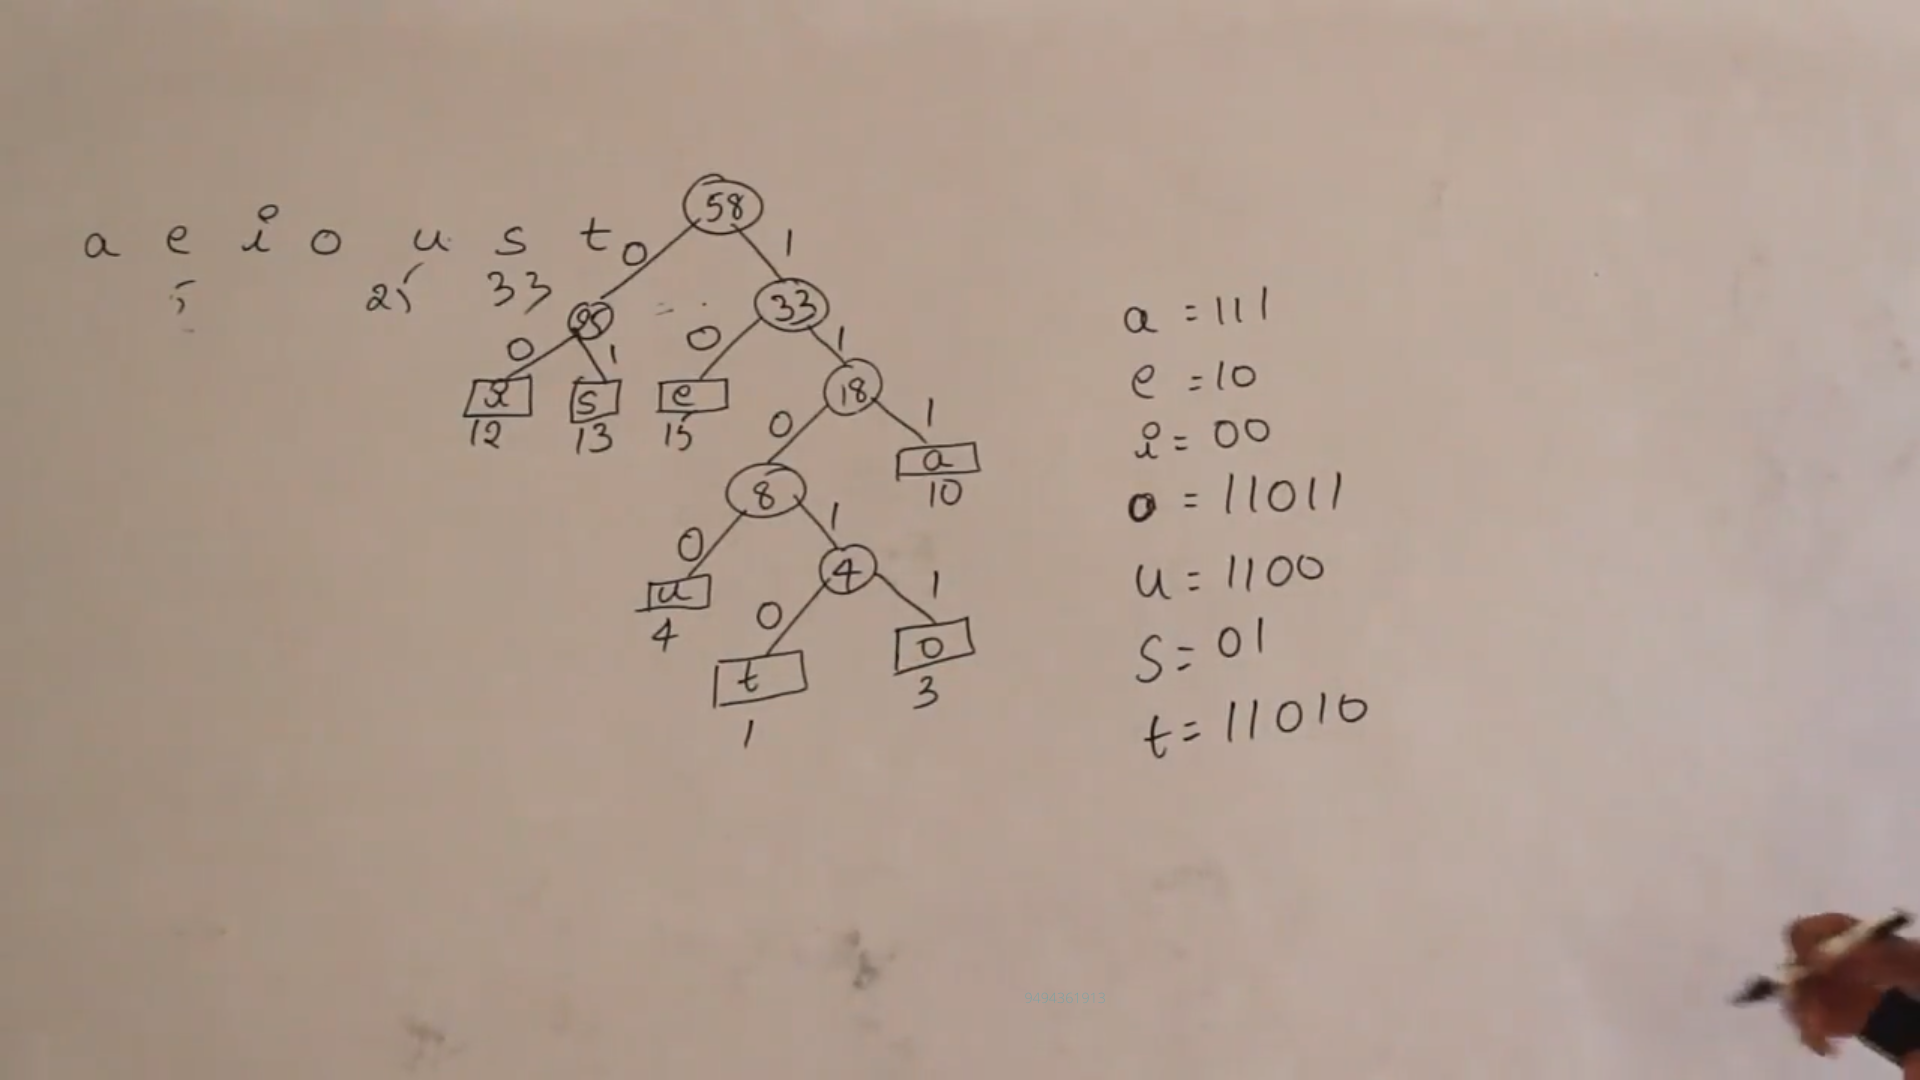 a e i o u s t
25 33
58
0 1
25 33
0 1 0 1
i s e 18
12 13 15 0 1
8 a
10
0 1
u 4
4 0 1
t o
1 3
a = 111
e = 10
i = 00
o = 11011
u = 1100
s = 01
t = 11010
9494361913